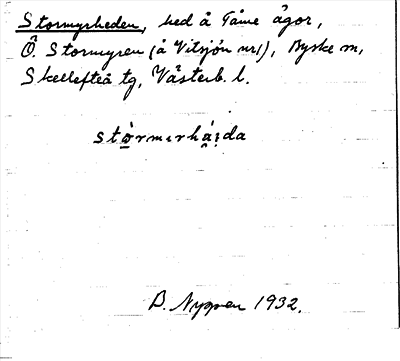 Stormyrheden, hed å Tåme ägor,
Ö. Stormyren (å Vitsjön nr 1), Byske sn,
Skellefteå tg, Västerb. l.
B. Nygren 1932.